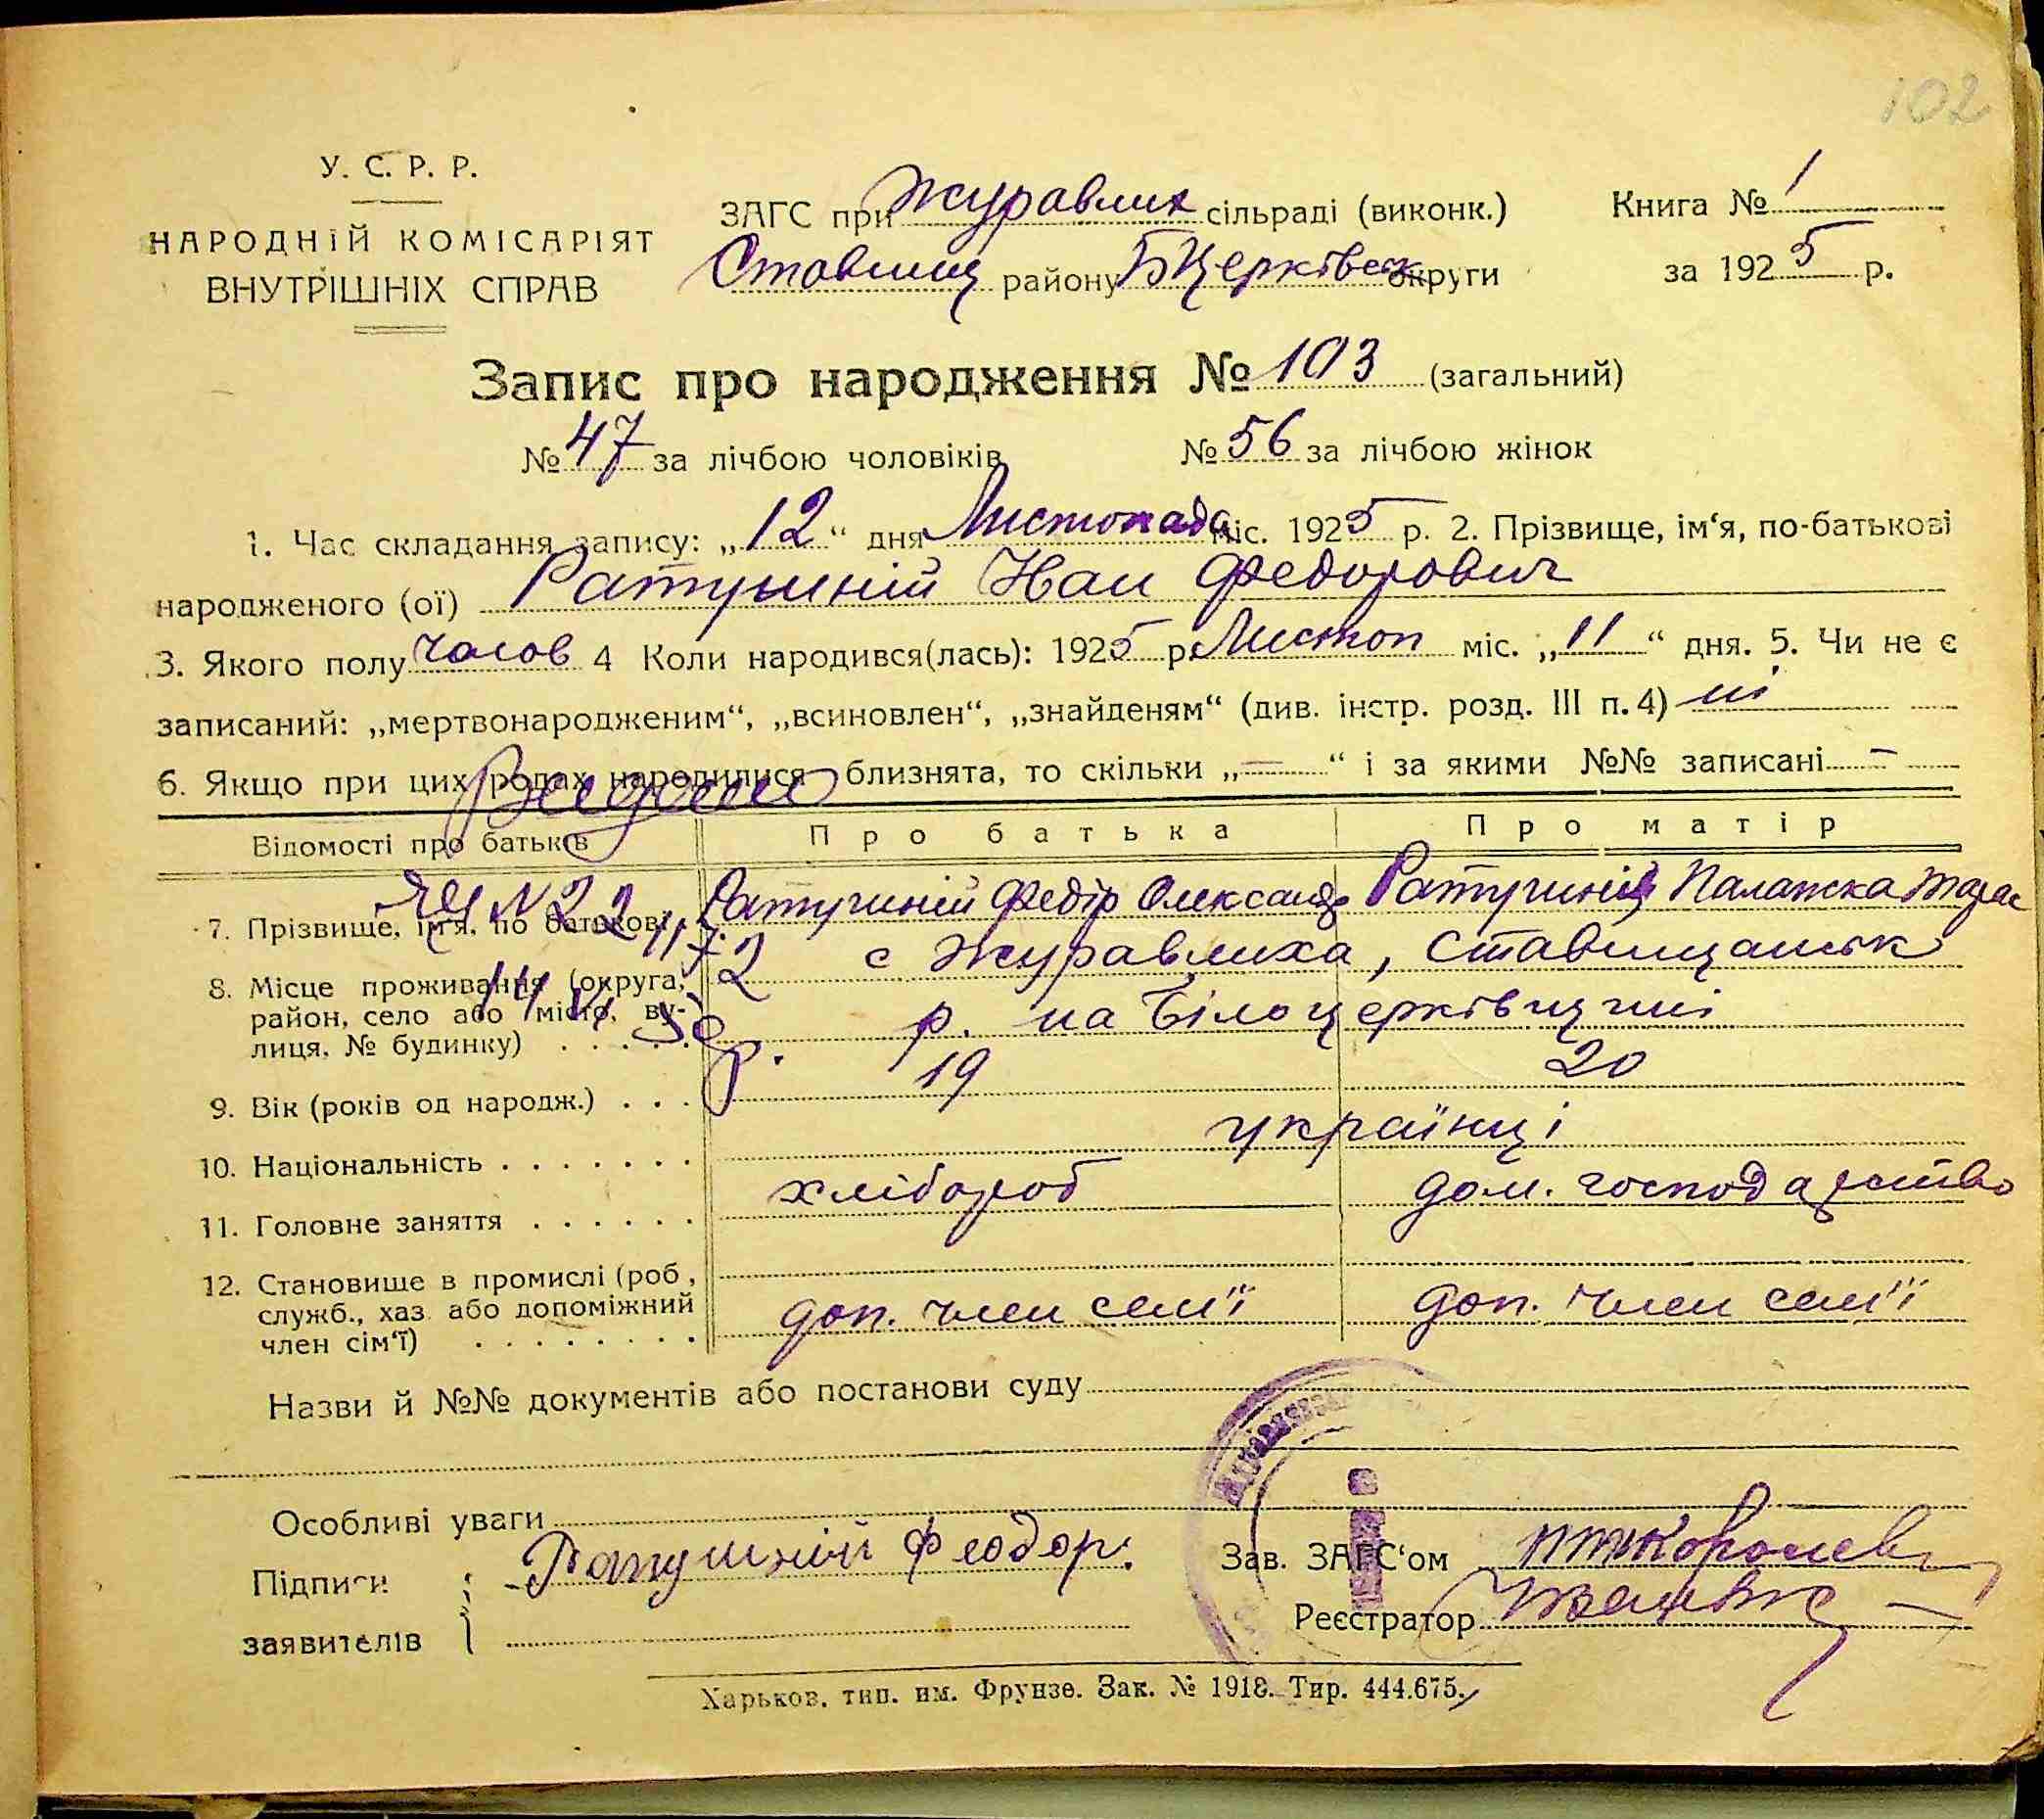 102
У. С. Р. Р.
НАРОДНІЙ КОМІСАРІЯТ
ВНУТРІШНІХ СПРАВ
ЗАГС при Журавлих сільраді (виконк.)
Ставищ району БЦерківськ округи
Книга № 1
за 1925 р.
Запис про народження № 103 (загальний)
№ 47 за лічбою чоловіків № 56 за лічбою жінок
1. Час складання запису: „12“ дня Листопада міс. 1925 р. 2. Прізвище, ім‘я, по-батькові
народженого (ої) Ратушній Иван Федорович
3. Якого полу чолов 4 Коли народився(лась): 1925 р. Листоп міс. „11“ дня. 5. Чи не є
записаний: „мертвонародженим“, „всиновлен“, „знайденям“ (див. інстр. розд. III п. 4) ні
6. Якщо при цих родах народилися близнята, то скільки „—“ і за якими №№ записані —
Відомості про батьків Про батька Про матір
7. Прізвище, ім‘я, по батькові Ратушній Федір Олександр Ратушній Палажка Тарас
8. Місце проживання (округа, с Журавлиха, Ставищанськ
район, село або місто, ву- р. на Білоцерківщині
лиця, № будинку) . . . . .
9. Вік (років од народж.) . . . 19 20
10. Національність . . . . . . . українці
11. Головне заняття . . . . . . хлібороб дом. господарство
12. Становище в промислі (роб,
служб., хаз. або допоміжний доп. член сем'ї доп. член сем'ї
член сім‘ї) . . . . . . . .
Назви й №№ документів або постанови суду
Особливі уваги
Підписи Ратушній Феодор. Зав. ЗАГС‘ом
заявителів Реєстратор
Харьков, тип. им. Фрунзе. Зак. № 1918. Тир. 444.675.